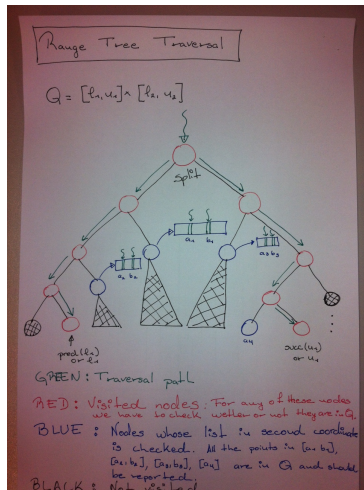 Range Tree Traversal
Q = [l₁, u₁] × [l₂, u₂]
split
a₁ b₁
a₂ b₂
a₃ b₃
a₄
pred(l₁)
or l₁
succ(u₁)
or u₁
GREEN: Traversal path
RED: Visited nodes: For any of these nodes
we have to check wether or not they are in Q
BLUE: Nodes whose list in second coordinate
is checked. All the points in [a₁, b₁],
[a₂, b₂], [a₃, b₃], [a₄] are in Q and should
be reported.
BLACK: Not visited